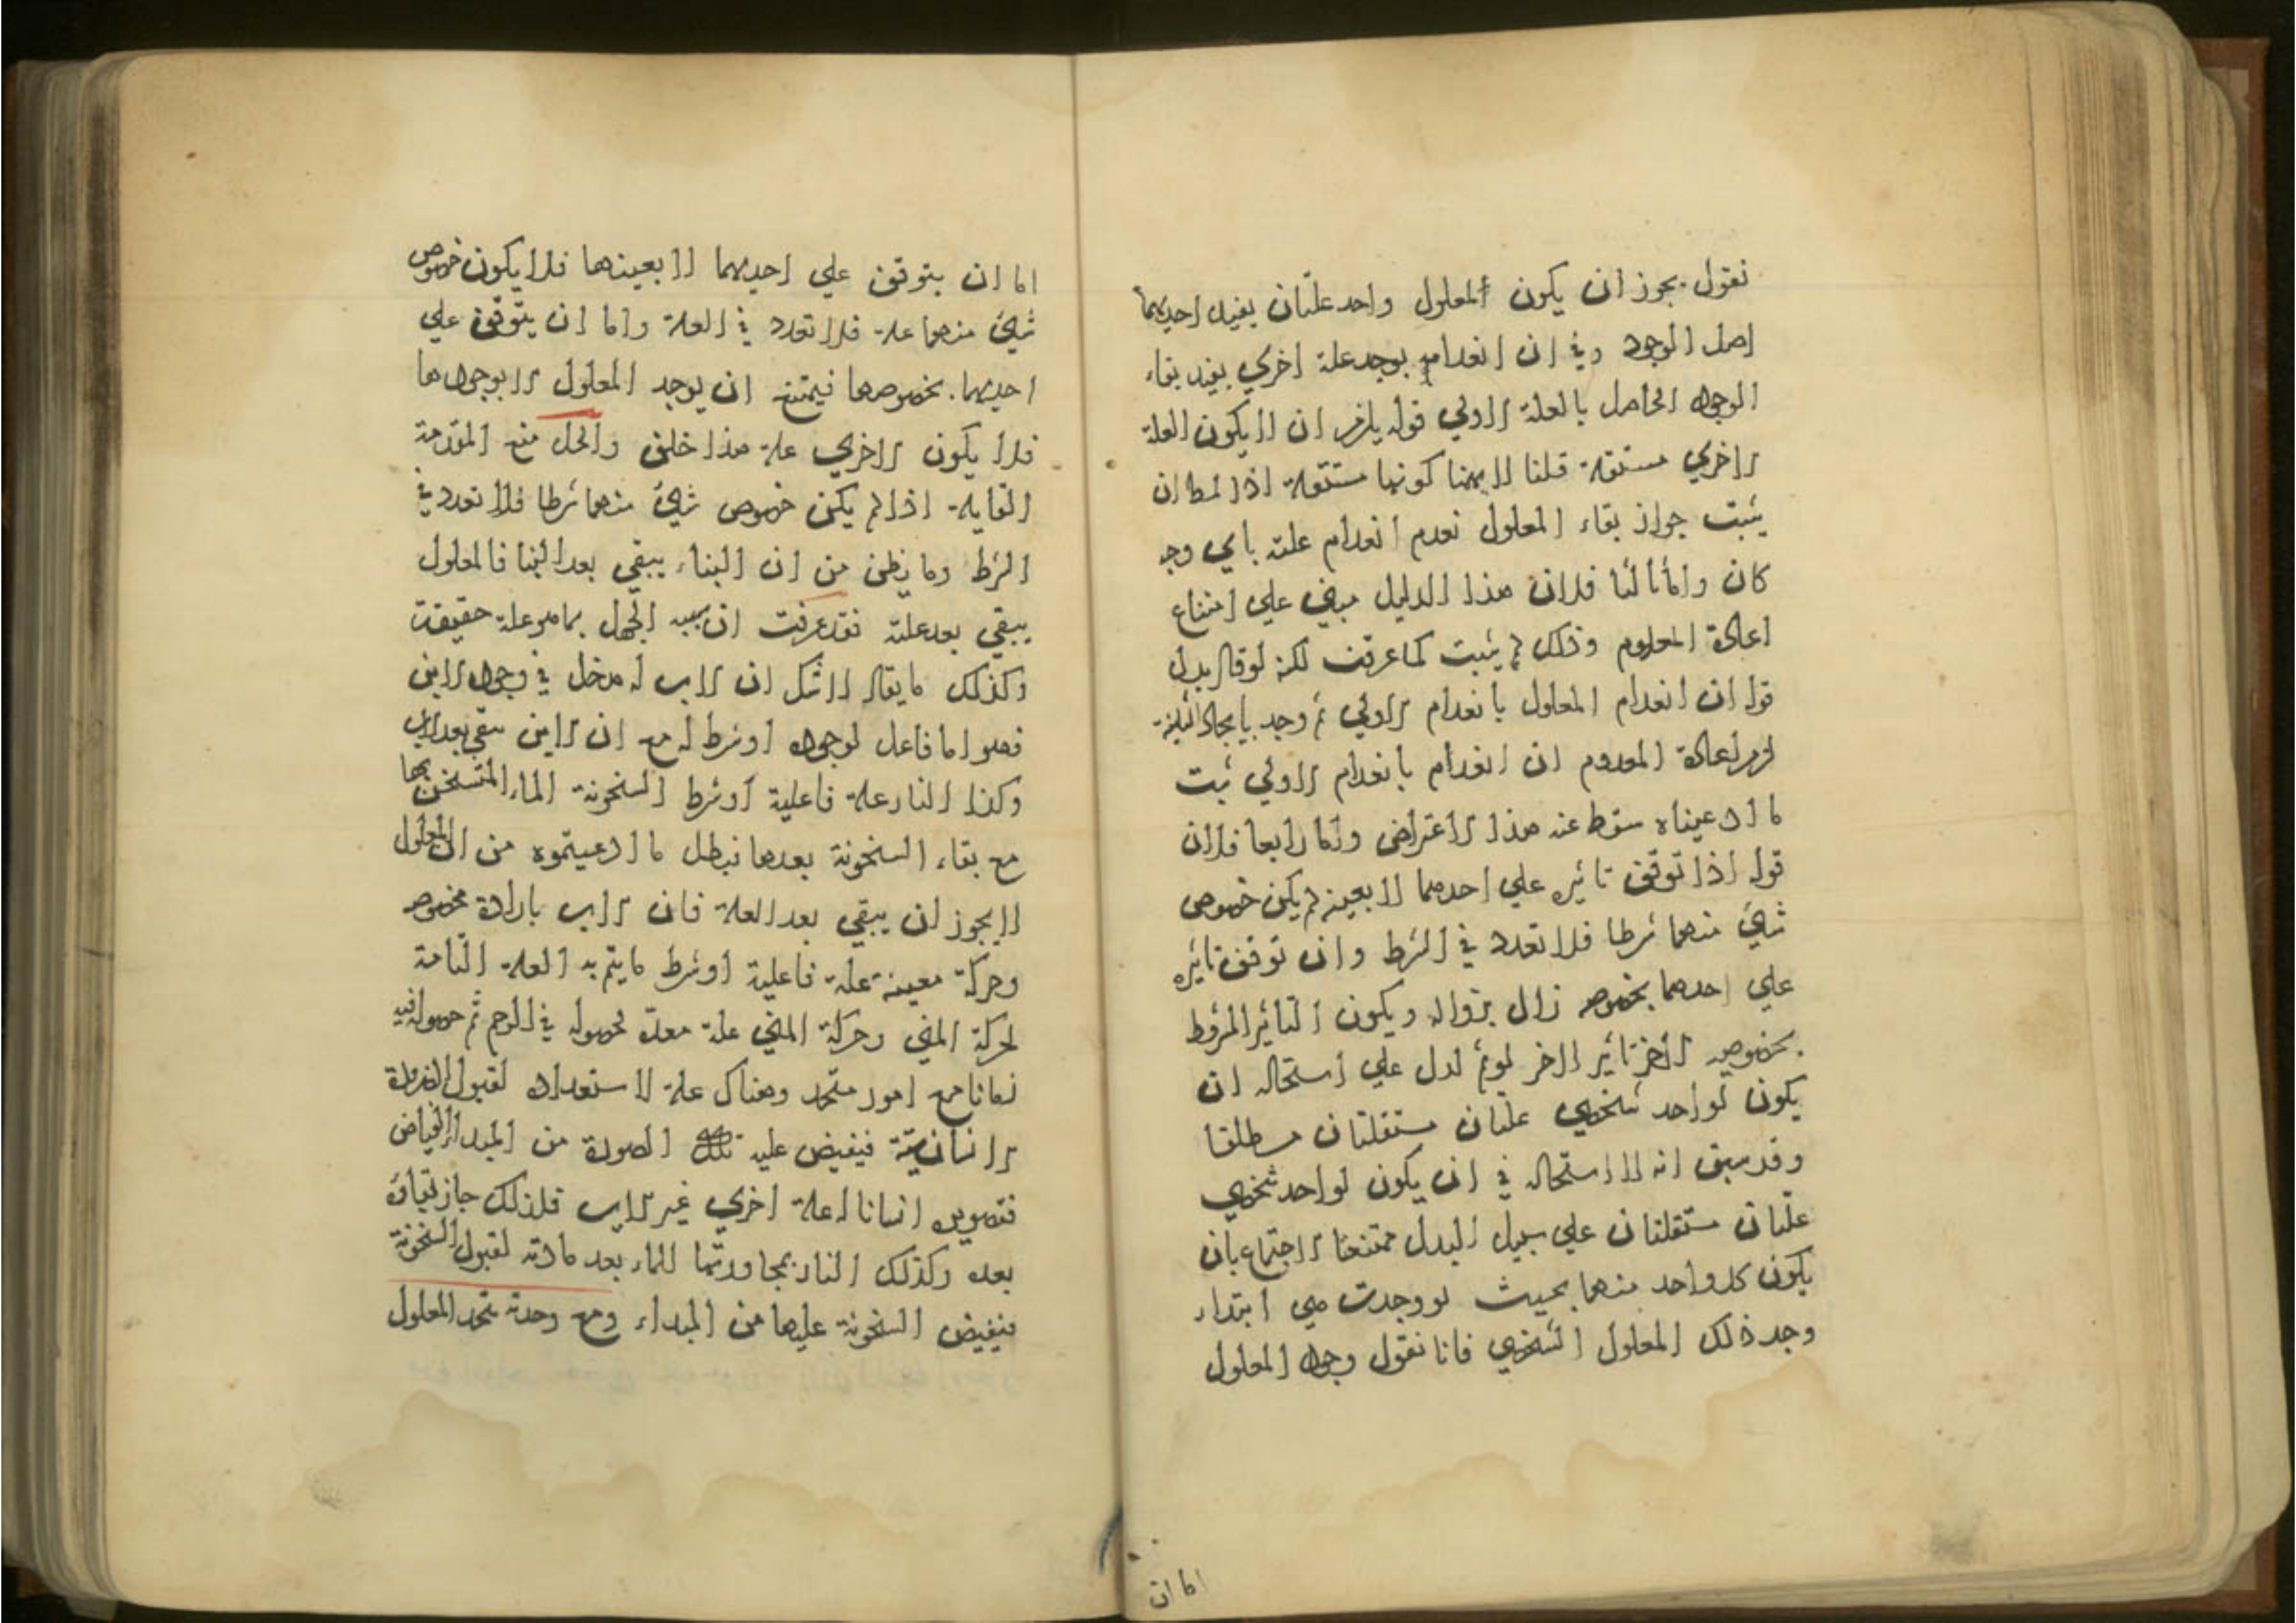 نقول يجوز ان يكون المعلول واحد علتان يفيد احديهما
اصل الوجود وفي ان انعدامه يوجد علة اخري يفيد بقاء
الوجود الحاصل بالعلة الاولي قوله يلزم ان لا يكون العلة
الاخري مستقلة قلنا لا يهمنا كونها مستقلة اذ المط ان
يثبت جواز بقاء المعلول بعدم انعدام علته باي وجه
كان واما ثالثا فلان هذا الدليل مبني علي امتناع
اعادة المعدوم وذلك لم يثبت كما عرفت لكنه لو قال بدل
قوله ان انعدام المعلول بانعدام الاولي ثم وجد بايجاد الثانية
لزم اعادة المعدوم ان انعدام بانعدام الاولي ثبت
ما ادعيناه سقط عنه هذا الاعتراض واما رابعا فلان
قوله اذا توقف تاثيره علي احدهما لا بعينه لم يكن خصوص
شيئ منهما شرطا فلا تعدد في الشرط وان توقف تاثيره
علي احدهما بخصوصه زال بزواله ويكون التاثير المشروط
بخصوصيه الاخر تاثير الاخر لو تم لدل علي استحالة ان
يكون لواحد شخصي علتان مستقلتان مطلقا
وقد سبق انه لا استحالة في ان يكون لواحد شخصي
علتان مستقلتان علي سبيل البدل ممتنعتا الاجتماع بان
يكون كل واحد منهما بحيث لو وجدت هي ابتداء
وجد ذلك المعلول الشخصي فانا نقول وجود المعلول
اما ان
اما ان يتوقف علي احديهما لا بعينها فلا يكون خصوص
شيئ منهما علة فلا تعدد في العلة واما ان يتوقف علي
احديهما بخصوصها فيمتنع ان يوجد المعلول الا بوجودها
فلا يكون الاخري علة هذا خلف والحل منع المقدمة
القايلة اذا لم يكن خصوص شيئ منهما شرطا فلا تعدد في
الشرط وما يظن من ان البناء يبقي بعد البنا فالمعلول
يبقي بعد علته فقد عرفت ان سببه الجهل بما هو علة حقيقة
وكذلك ما يقال لا شك ان الاب له مدخل في وجود الابن
فهو اما فاعل لوجوده او شرط له مع ان الابن يبقي بعد الاب
وكذا النار علة فاعلية او شرط لسخونة الماء المتسخن بها
مع بقاء السخونة بعدها فبطل ما ادعيتموه من ان المعلول
لا يجوز ان يبقي بعد العلة فان الاب بارادة مخصوصه
وحركة معينة علة فاعلية او شرط ما يتم به العلة التامة
لحركة المني وحركة المني علة معدة لحصوله في الرحم ثم حصوله فيه
زمانا مع امور متجدد وهناك علة لاستعداده لقبول الصورة
الانسانية فيفيض عليه تلك الصورة من المبدأ الفياض
فتصويره انسانا له علة اخري غير الاب فلذلك جاز بقاؤه
بعده وكذلك النار بمجاورتها للماء يعد مادته لقبول السخونة
فيفيض السخونة عليها من المبداء ومع وحدته يتحد المعلول